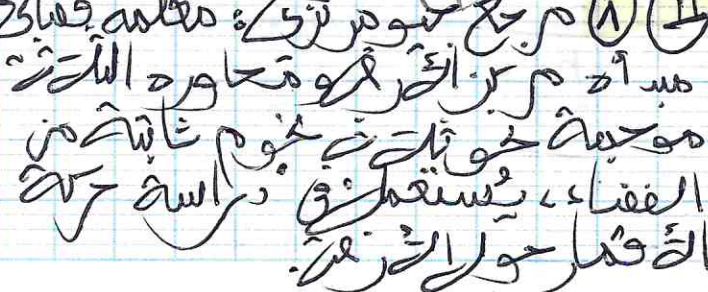 ⊥ ⑧ مرجع جيومركزي: معلمه فضائي
مبدأه مركز الأرض و محاوره الثلاثة
موجهة نحو ثلاث نجوم ثابتة من
الفضاء، يستعمل في دراسة حركة
الأقمار حول الأرض.